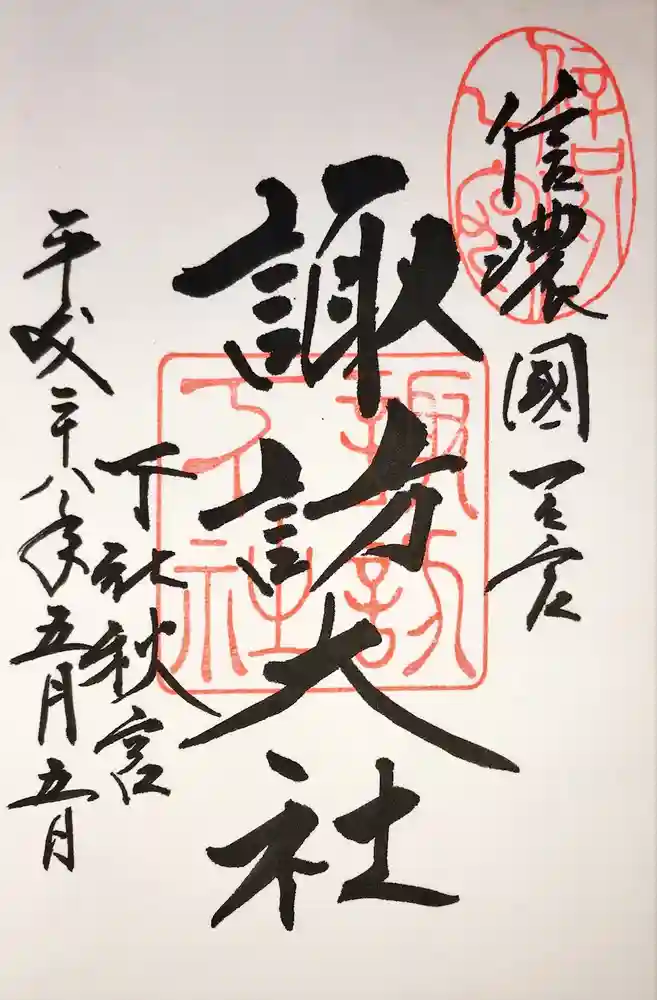 信濃國一之宮
諏訪大社
諏訪
下社
下社秋宮
平成二十八年五月五日